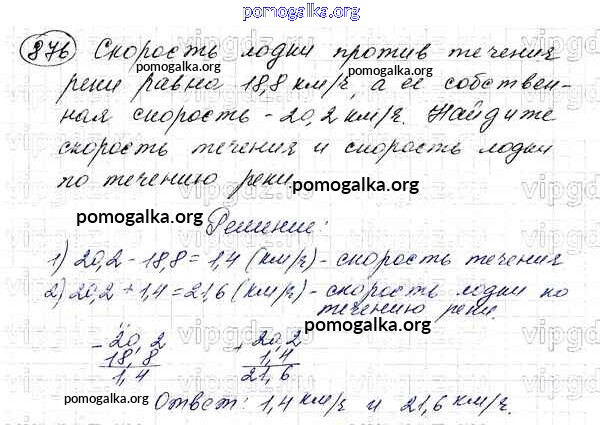 pomogalka.org
876 Скорость лодки против течения
pomogalka.org
реки равна 18,8 км/ч, а её собствен-
ная скорость - 20,2 км/ч. Найдите
скорость течения и скорость лодки
по течению реки.
pomogalka.org
pomogalka.org
Решение:
1) 20,2 - 18,8 = 1,4 (км/ч) - скорость течения
2) 20,2 + 1,4 = 21,6 (км/ч) - скорость лодки по
течению реки.
pomogalka.org
- 20,2 + 20,2
18,8 1,4
1,4 21,6
pomogalka.org
Ответ: 1,4 км/ч и 21,6 км/ч.